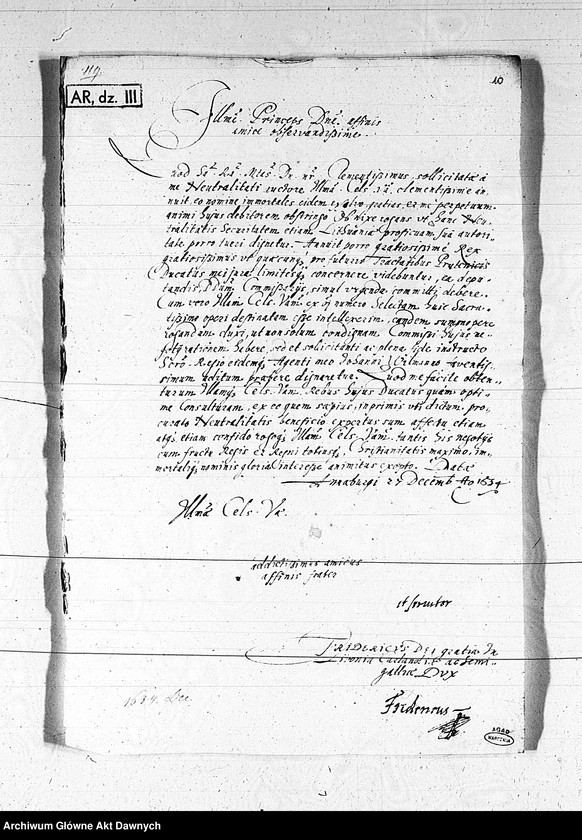 119.
10
AR, dz. III
Illme Princeps Dne affinis
amice observandissime.
Quod Sa Ra Mtas Ds nr Clementissimus, sollicitatae a
me Neutralitati autore Illma Cels. Va. clementissime an„
nuit eo nomine immortales eidem grates, et me perpetuum
animi hujus debitorem obstringo. Obnixe rogans vt hanc Neu„
tralitatis Securitatem etiam Lithuaniae proficuam, sua autori„
tate porro tueri dignetur. Annuit porro gratiosissime Rex
gratiosissimus vt quaecunq pro futuris Tractatibus Prutenicis
Ducatus mei jura limitesq concernere videbuntur, ea depu„
tandis DDnm Commissarijs, simul vrgenda committi debere.
Cum vero Illam Cels. Vam. ex numero Selectam huic Sacra„
tissimo operi destinatam esse intellexerim, eandem summopere
rogandam duxi, ut non solum condignam Commissi hujus ne„
gotij rationem habere, sed et sollicitanti ac plena fide instructo
Agenti meo Johanni
simum aditum praebere dignetur. Quod me facile obten„
turum Illamq Cels. Vam. Rebus hujus Ducatus quam opti„
me Consulturam, ex eo quem saepius, inprimis vti dictum, pro„
curato Neutralitatis beneficio expertus sum affectu etiam
atq etiam confido rogoq Illam Cels. Vam. tantis his negotijs
cum fructu Regis et Regni totiusq Christianitatis maximo, im„
mortaliq nominis gloria interesse animitus exopto. Datae
Annaburgi 27 Decemb Ao 1634
Illma Cels. Vae.
addictissimus amicus
affinis frater
et servitor
FRIDERICVS DEI gratia In
Livonia Curlandiae et Semi„
galliae DVX
Fridericus
1634. Dec
AGAD
Archiwum Główne Akt Dawnych